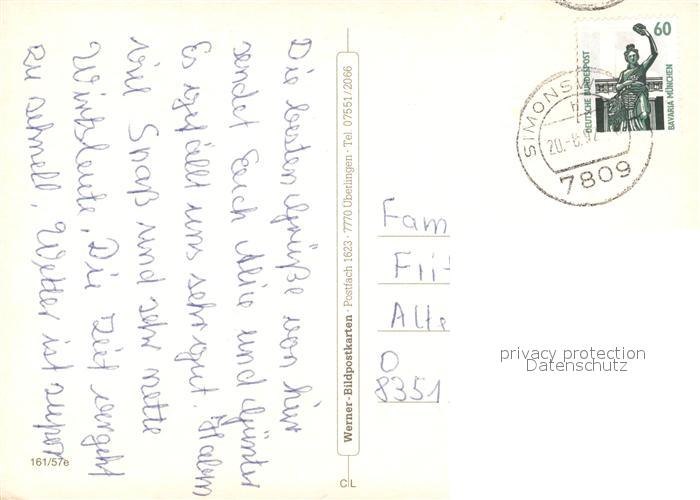 Die besten Grüße von hier
sendet Euch Alice und Günter
Es gefällt uns sehr gut. Haben
viel Spaß und sehr nette
Wirtsleute. Die Zeit vergeht
zu schnell, Wetter ist super
161/57e
Werner-Bildpostkarten · Postfach 1623 · 7770 Überlingen · Tel. 07551/2066
C L
60
DEUTSCHE BUNDESPOST
BAVARIA MÜNCHEN
SIMONSW
20.-8.92
7809
Fam
Alte
O
8351
privacy protection
Datenschutz